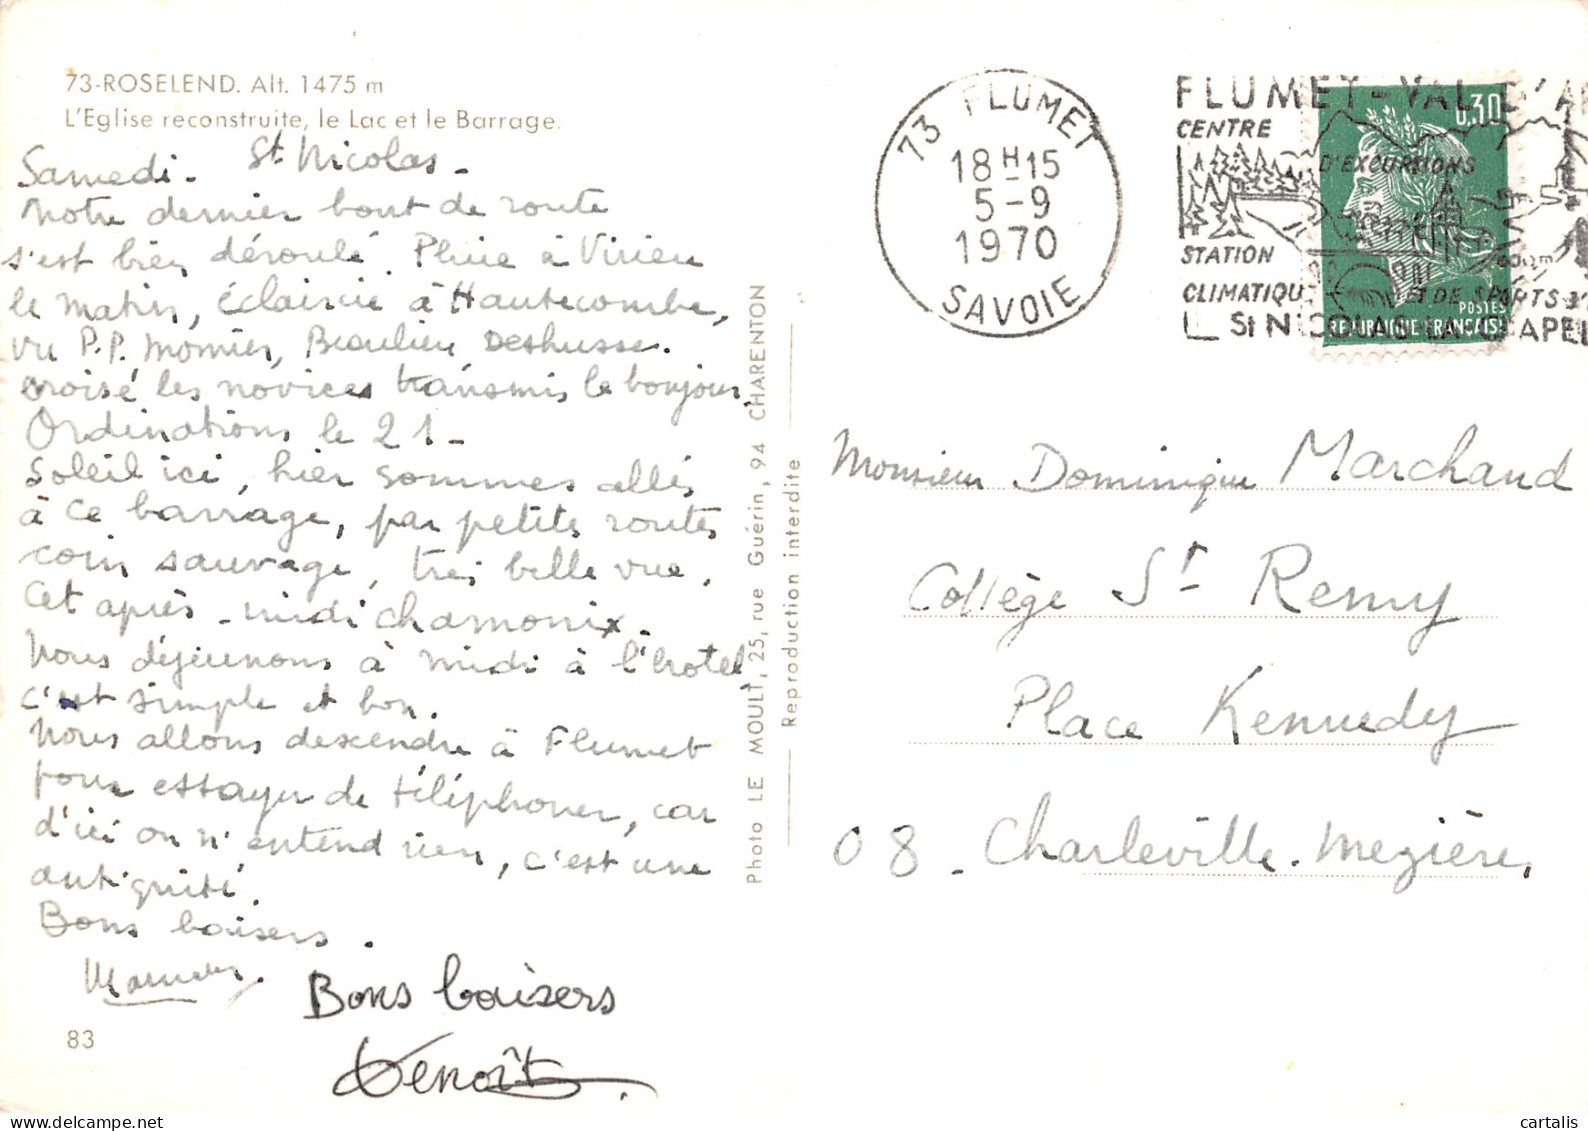 73-ROSELEND. Alt. 1475 m
L'Eglise reconstruite, le Lac et le Barrage.
Samedi. St Nicolas.
Notre dernier bout de route
s'est bien déroulé. Pluie à Virieu
le matin, éclaircie à Hautecombe,
vu P.P. Beaulieu
croisé les novices transmis le bonjour.
Ordinations le 21.
Soleil ici, hier sommes allés
à ce barrage, par petites routes
coin sauvage, très belle vue.
Cet après-midi chamonix.
Nous déjeunons à midi à l'hotel
c'est simple et bon.
Nous allons descendre à Flumet
pour essayer de téléphoner, car
d'ici on n'entend rien, c'est une
antiquité.
Bons baisers.
Bons baisers
Benoît.
83
Photo LE MOULT, 25, rue Guérin, 94 CHARENTON
Reproduction interdite
73 FLUMET
18H15
5-9
1970
SAVOIE
FLUMET-VAL D'AR
CENTRE
D'EXCURSIONS
STATION
CLIMATIQUE ET DE SPORTS D'
St NICOLAS LA CHAPEL
0,30
POSTES
REPUBLIQUE FRANÇAISE
Monsieur Dominique Marchand
Collège St Remy
Place Kennedy
08. Charleville-Mezières
cartalis